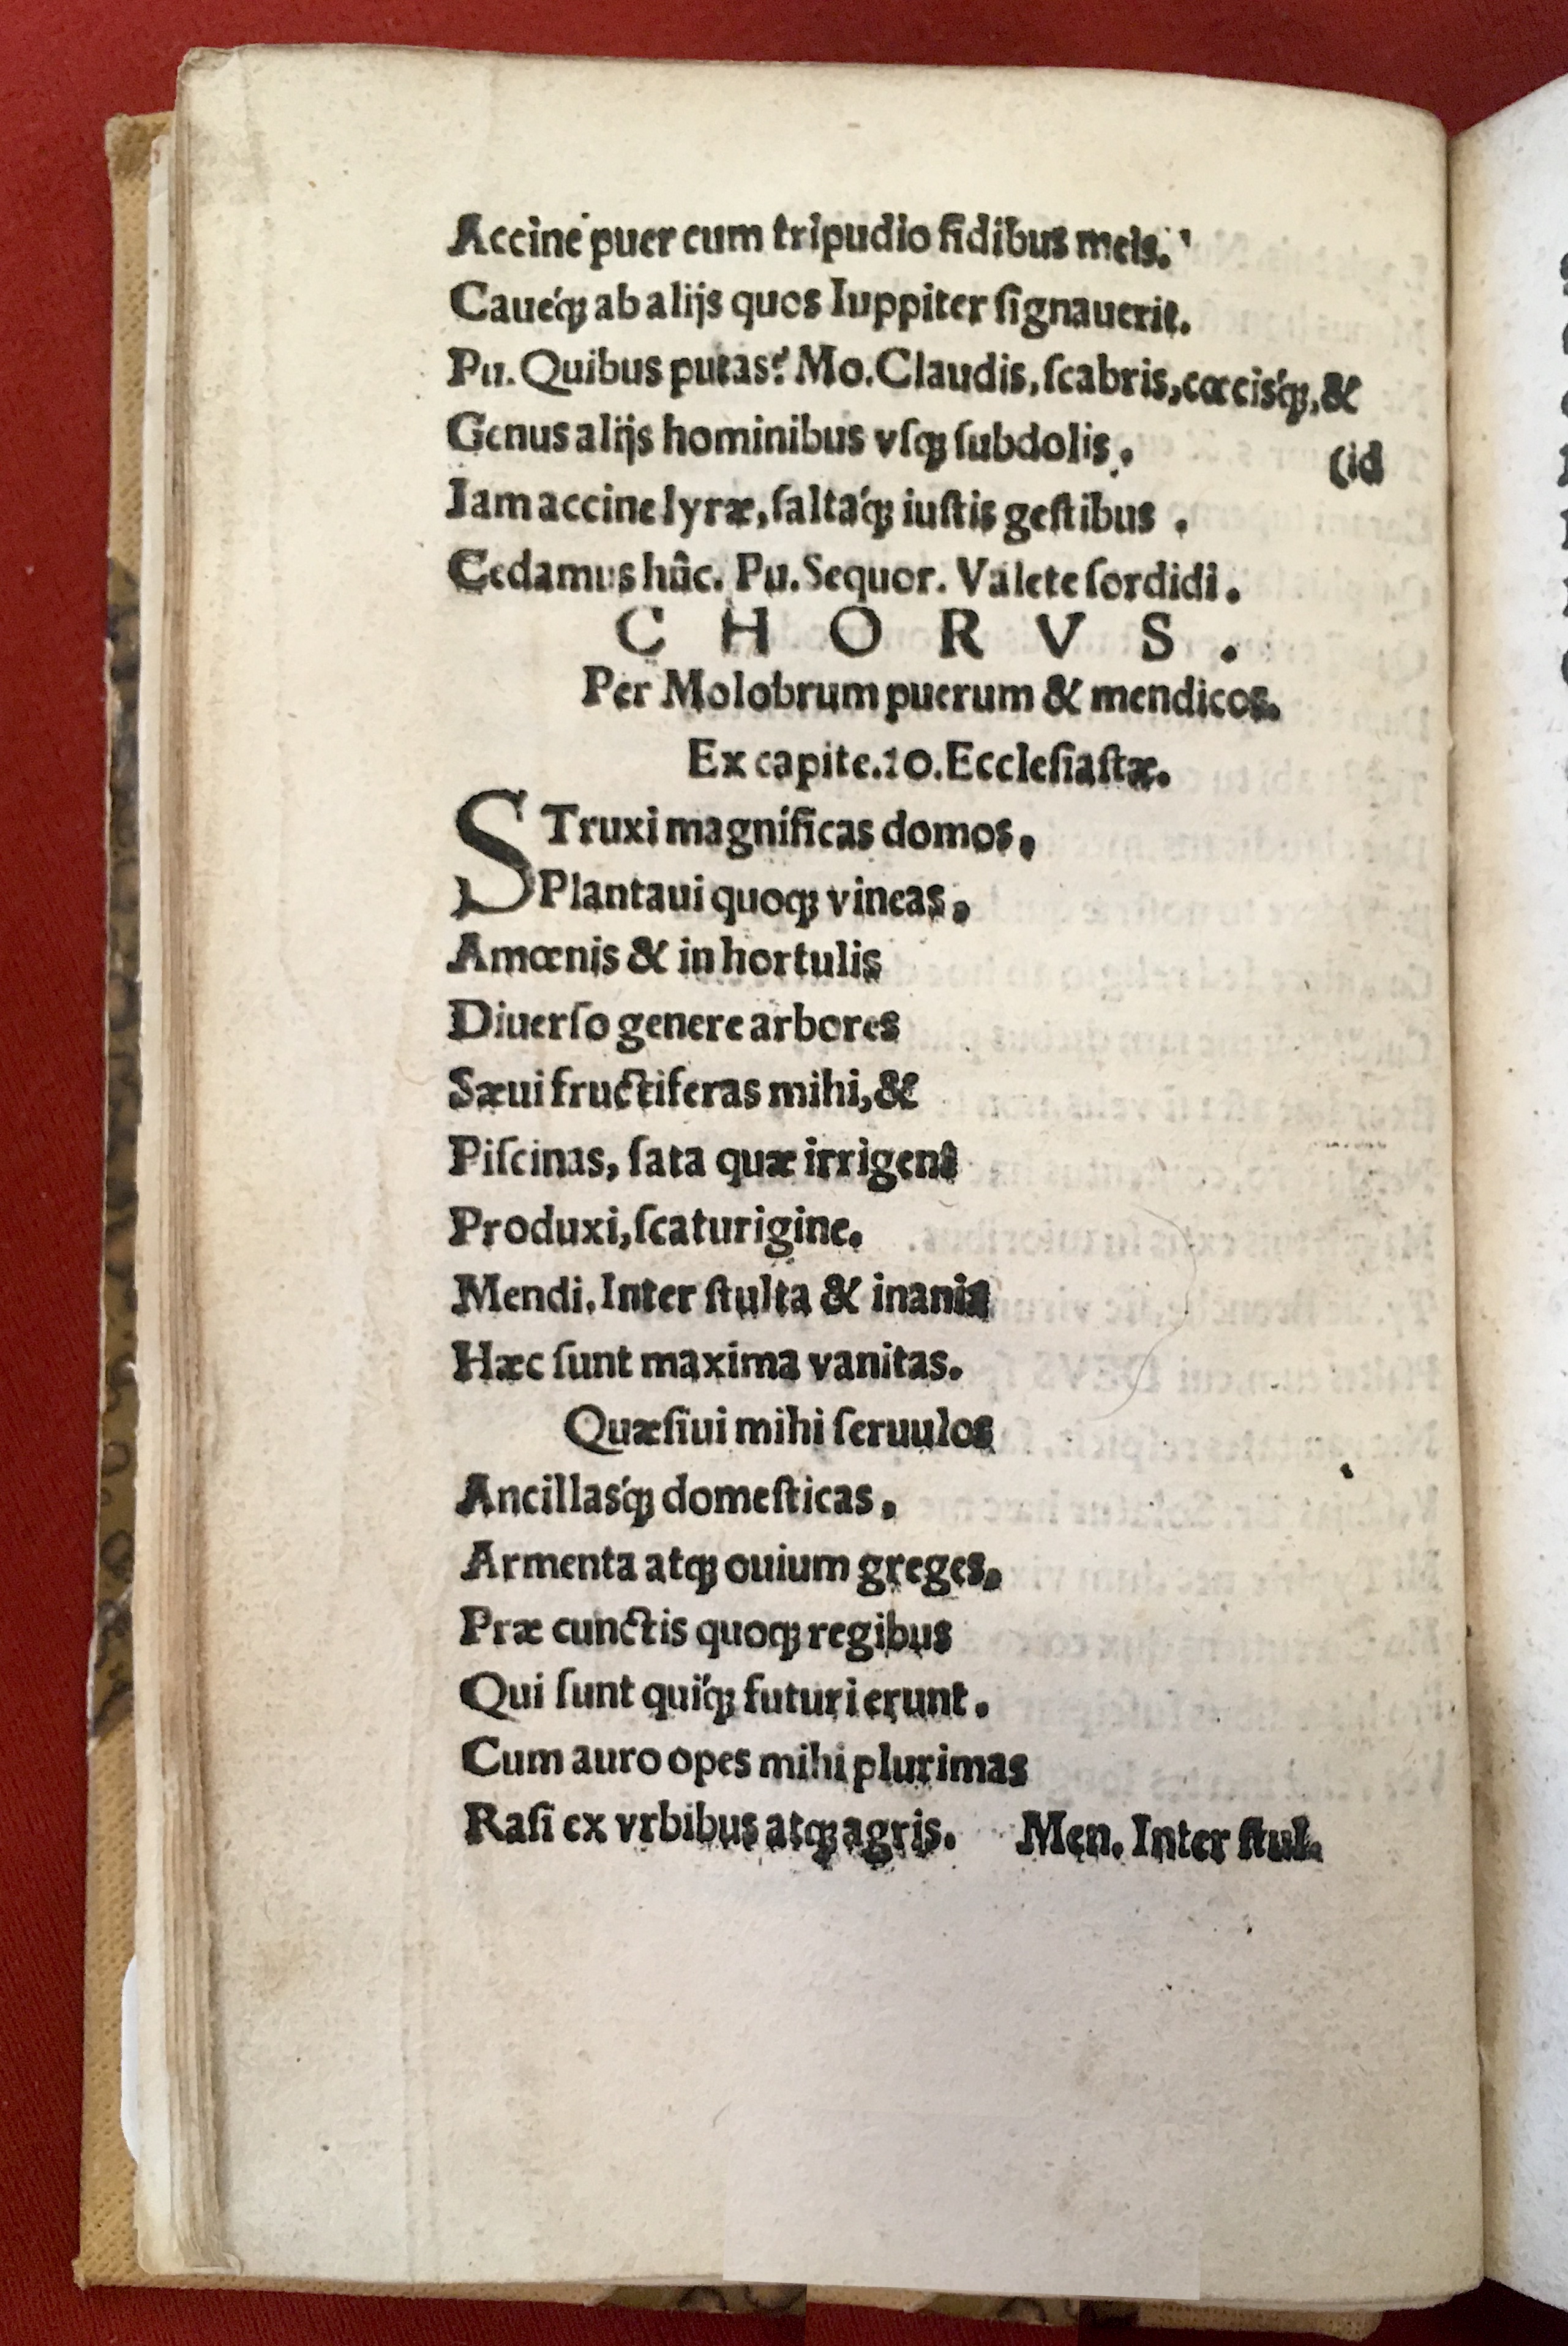 Accine puer cum tripudio fidibus meis.
Caueq́ꝫ ab alijs quos Iuppiter ſignauerit.
Pu. Quibus putas? Mo. Claudis, ſcabris, cœcisq́ꝫ, &
Genus alijs hominibus vſqꝫ ſubdolis. (id
Iam accine lyræ, ſaltaq́ꝫ iuſtis geſtibus.
Cedamus hûc. Pu. Sequor. Valete ſordidi.
CHORVS.
Per Molobrum puerum & mendicos.
Ex capite. 10. Eccleſiaſtæ.
STruxi magnificas domos,
Plantaui quoqꝫ vineas,
Amœnis & in hortulis
Diuerſo genere arbores
Sæui fructiferas mihi, &
Piſcinas, ſata quæ irrigent
Produxi, ſcaturigine.
Mendi. Inter ſtulta & inania
Hæc ſunt maxima vanitas.
Quæſiui mihi ſeruulos
Ancillasq́ꝫ domeſticas,
Armenta atqꝫ ouium greges,
Præ cunctis quoqꝫ regibus
Qui ſunt quiq́ꝫ futuri erunt.
Cum auro opes mihi plurimas
Raſi ex vrbibus atqꝫ agris. Men. Inter ſtul.